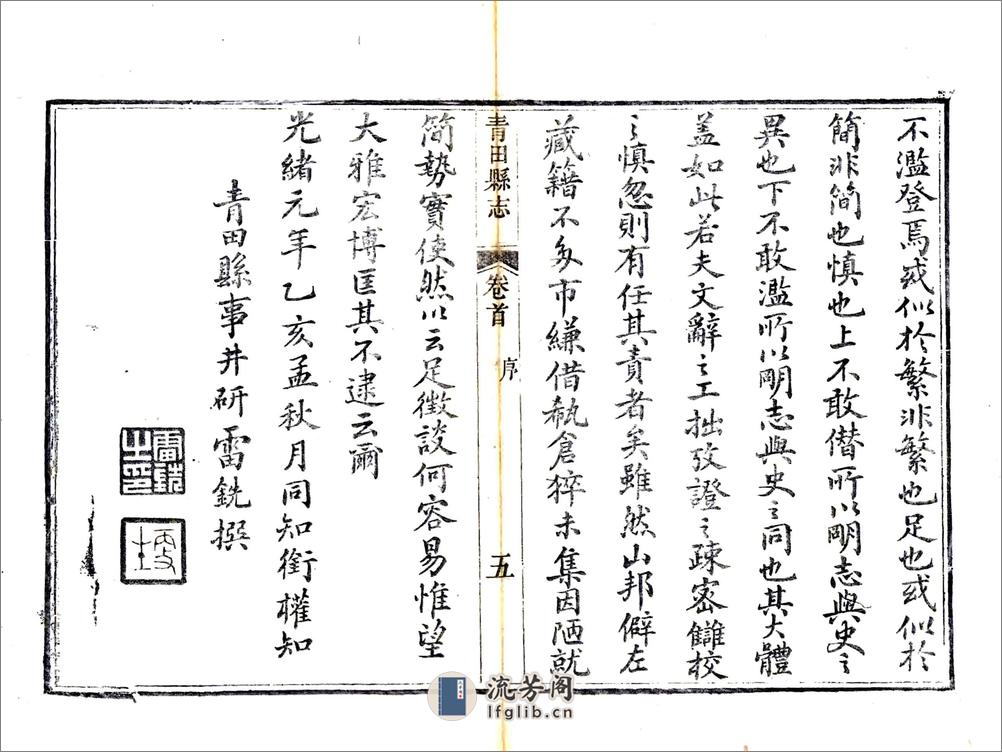 不濫登焉或似於繁非繁也足也或似於
簡非簡也慎也上不敢僭所以明志與史之
異也下不敢濫所以明志與史之同也其大體
蓋如此若夫文辭之工拙攷證之疎密讎校
之慎忽則有任其責者矣雖然山邦僻左
藏籍不多市縑借瓻倉猝未集因陋就
青田縣志
卷首
序
五
簡勢實使然以云足徵談何容易惟望
大雅宏博匡其不逮云爾
光緒元年乙亥孟秋月同知銜權知
青田縣事井研雷銑撰
雷銑之印
流芳阁
lfglib.cn